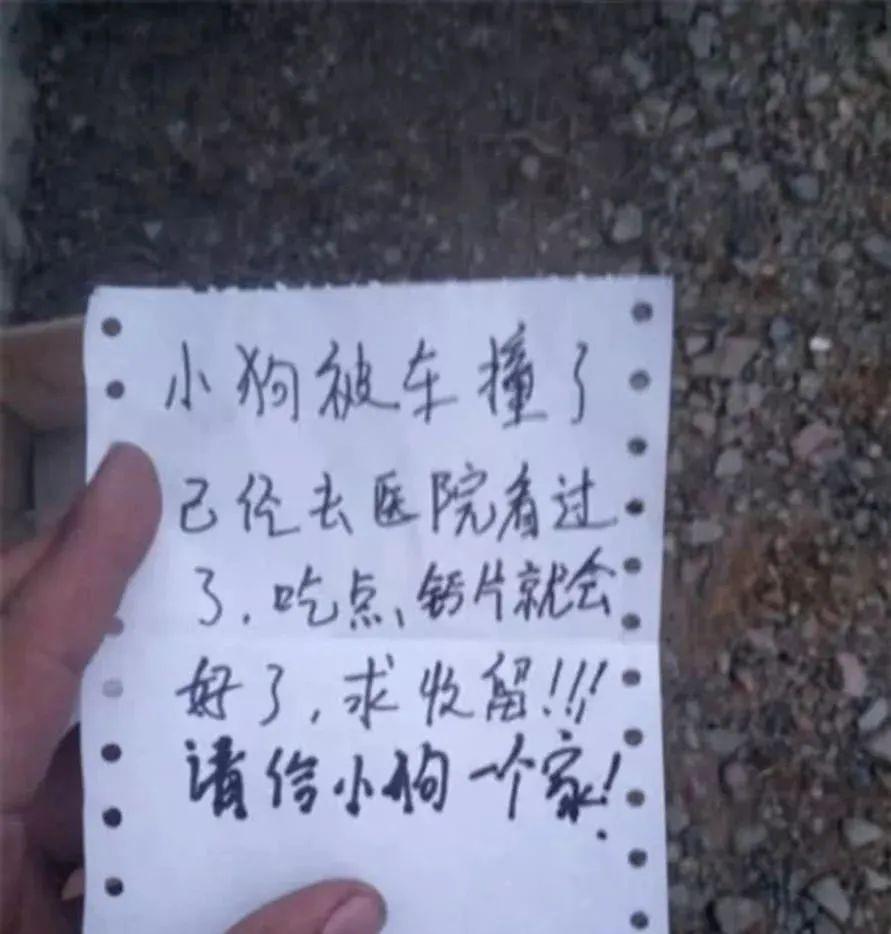 小狗被车撞了
已经去医院看过
了,吃点、钙片就会
好了,求收留!!!
请给小狗一个家!